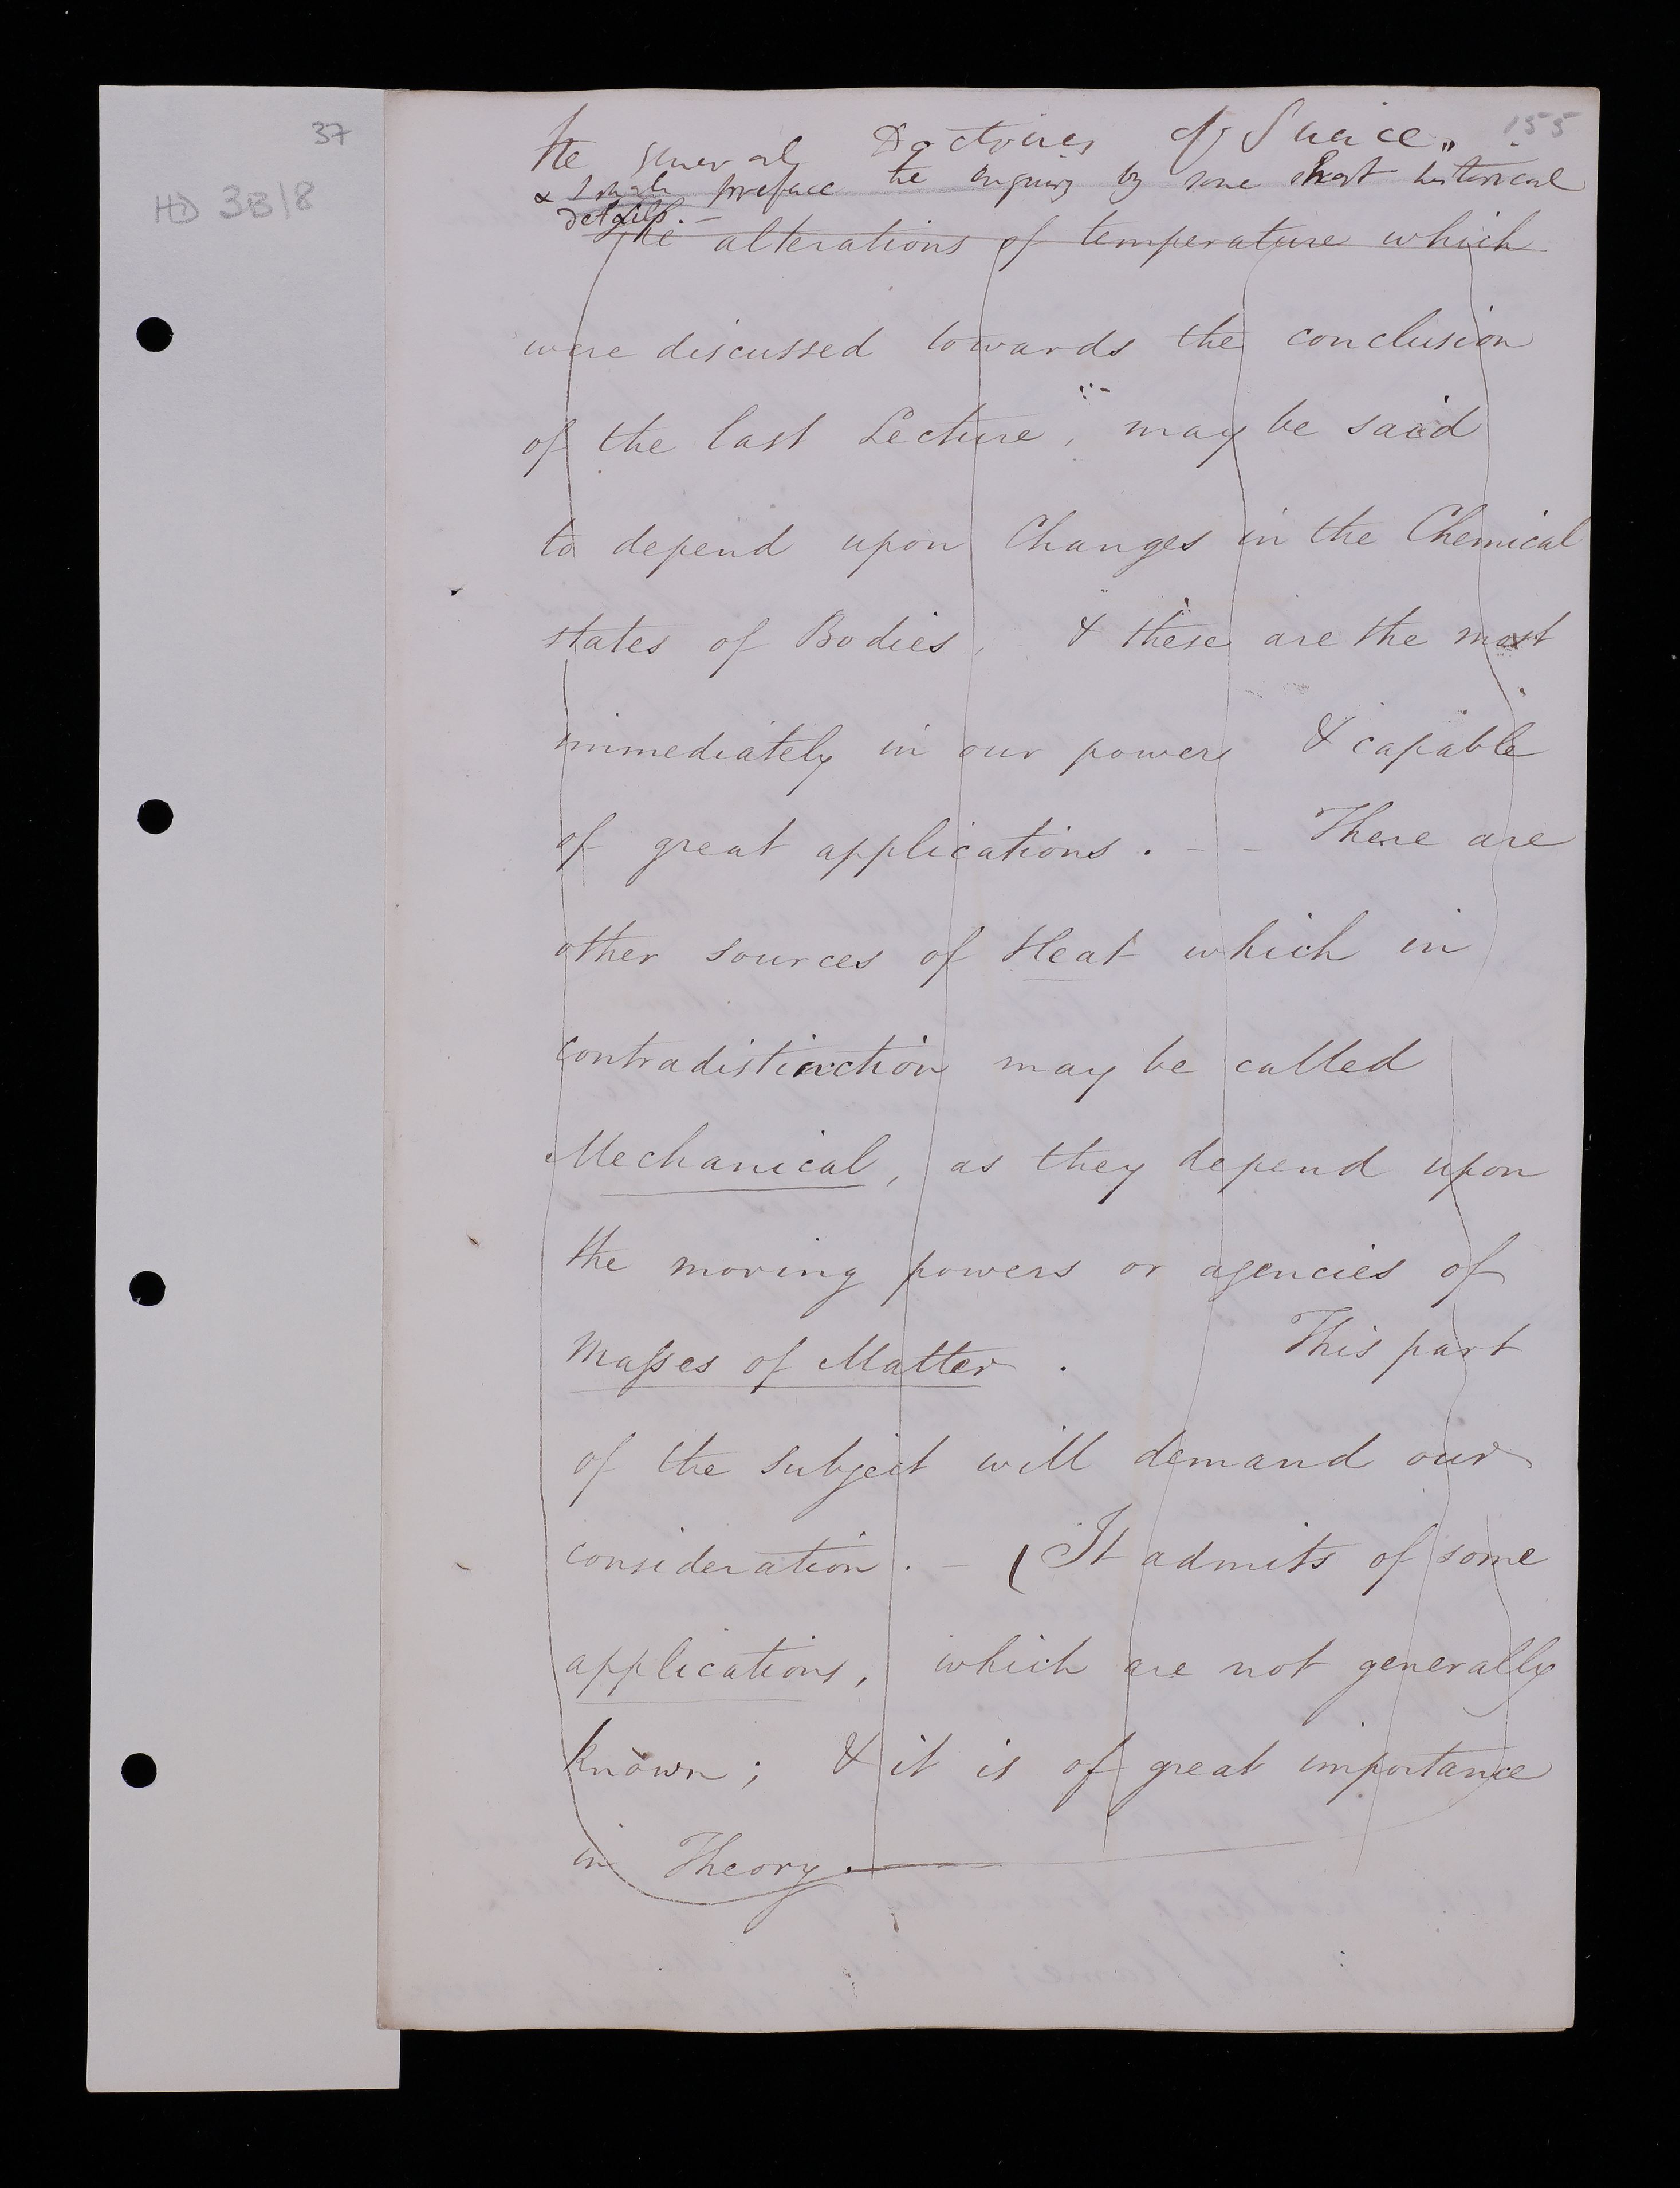 37
HD 3B/8
155
the general Doctrines of Science,,
& I shall preface the enquiry by some short historical
details. –
The alterations of temperature which
were discussed towards the conclusion
of the last Lecture, may be said
to depend upon Changes in the Chemical
states of Bodies, & these are the most
immediately in our powers & capable
of great applications. – – There are
other sources of Heat which in
contradistinction may be called
Mechanical, as they depend upon
the moving powers or agencies of
Masses of Matter. This part
of the subject will demand our
consideration. – (It admits of some
applications, which are not generally
known; & it is of great importance
in Theory. —